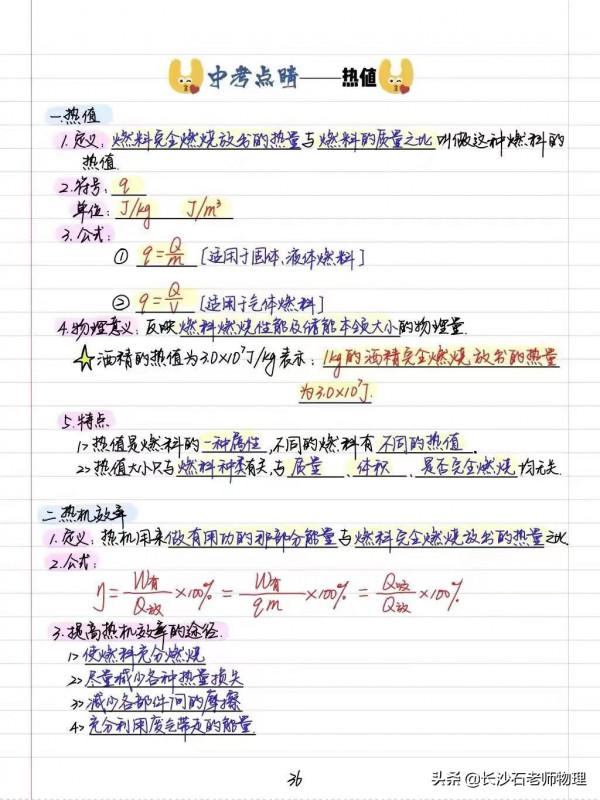 中考点睛——热值
一.热值
1.定义: 燃料完全燃烧放出的热量与燃料的质量之比叫做这种燃料的
热值.
2.符号: q
单位: J/kg J/m³
3.公式:
① q=Q/m [适用于固体、液体燃料]
② q=Q/V [适用于气体燃料]
4.物理意义: 反映燃料燃烧性能及储能本领大小的物理量.
酒精的热值为3.0×10⁷J/kg表示: 1kg的酒精完全燃烧放出的热量
为3.0×10⁷J.
5.特点
1> 热值是燃料的一种属性,不同的燃料有不同的热值.
2> 热值大小只与燃料种类有关,与质量、体积、是否完全燃烧均无关.
二.热机效率
1.定义: 热机用来做有用功的那部分能量与燃料完全燃烧放出的热量之比
2.公式:
η=W有/Q放×100%=W有/qm×100%=Q吸/Q放×100%
3.提高热机效率的途径.
1> 使燃料充分燃烧
2> 尽量减少各种热量损失
3> 减少各部件间的摩擦
4> 充分利用废气带走的能量
36
头条@长沙石老师物理